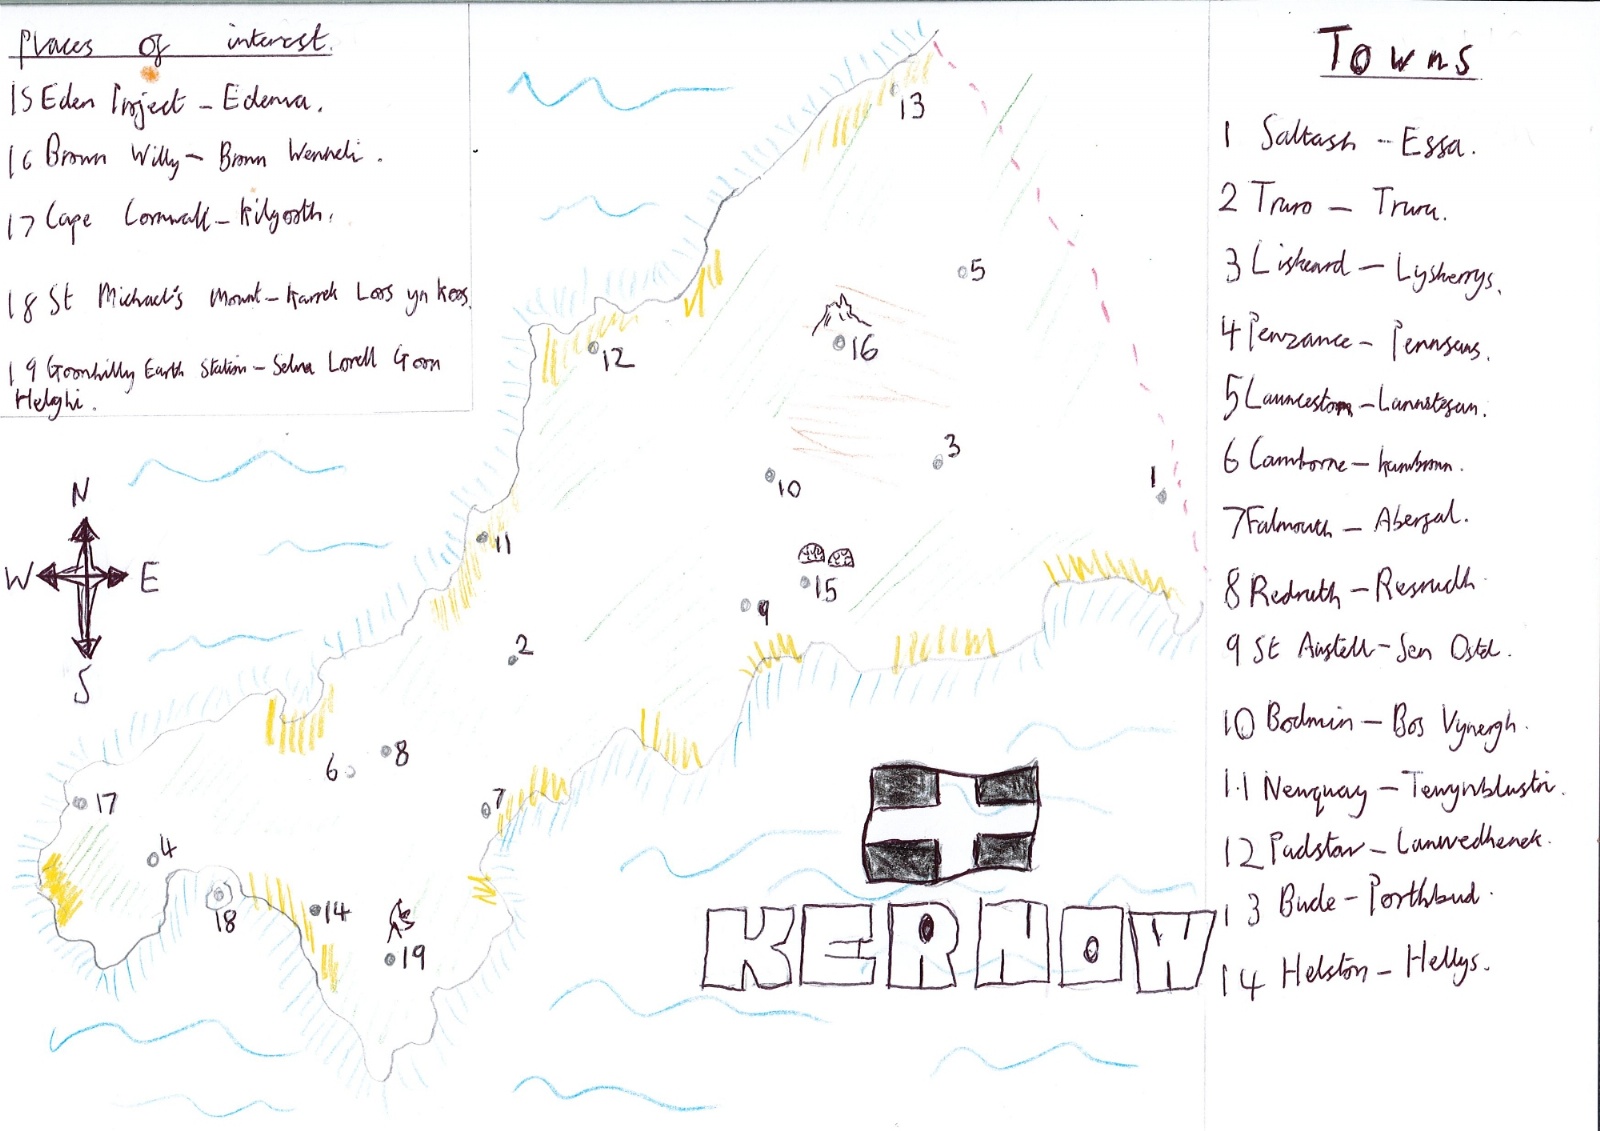 Places of interest.
15 Eden Project - Edenva.
16 Bronn Willy - Bronn Wenneli.
17 Cape Cornwall - Kilgoodh.
18 St Michael's Mount - Karrek Loos yn Koos.
19 Goonhilly Earth Station - Selva Lorell Goon
Helghi.
N
W E
S
13
5
16
12
3
10
1
11
15
9
2
8
6
7
17
4
14
18
19
KERNOW
Towns
1 Saltash - Essa.
2 Truro - Truru.
3 Liskeard - Lyskerrys.
4 Penzance - Pennsans.
5 Launceston - Lannstefan.
6 Camborne - Kambronn.
7 Falmouth - Aberfal.
8 Redruth - Resrudh.
9 St Austell - Sen Ostel.
10 Bodmin - Bos Vynergh.
11 Newquay - Tewynblustri.
12 Padstow - Lannwedhenek.
13 Bude - Porthbud.
14 Helston - Hellys.